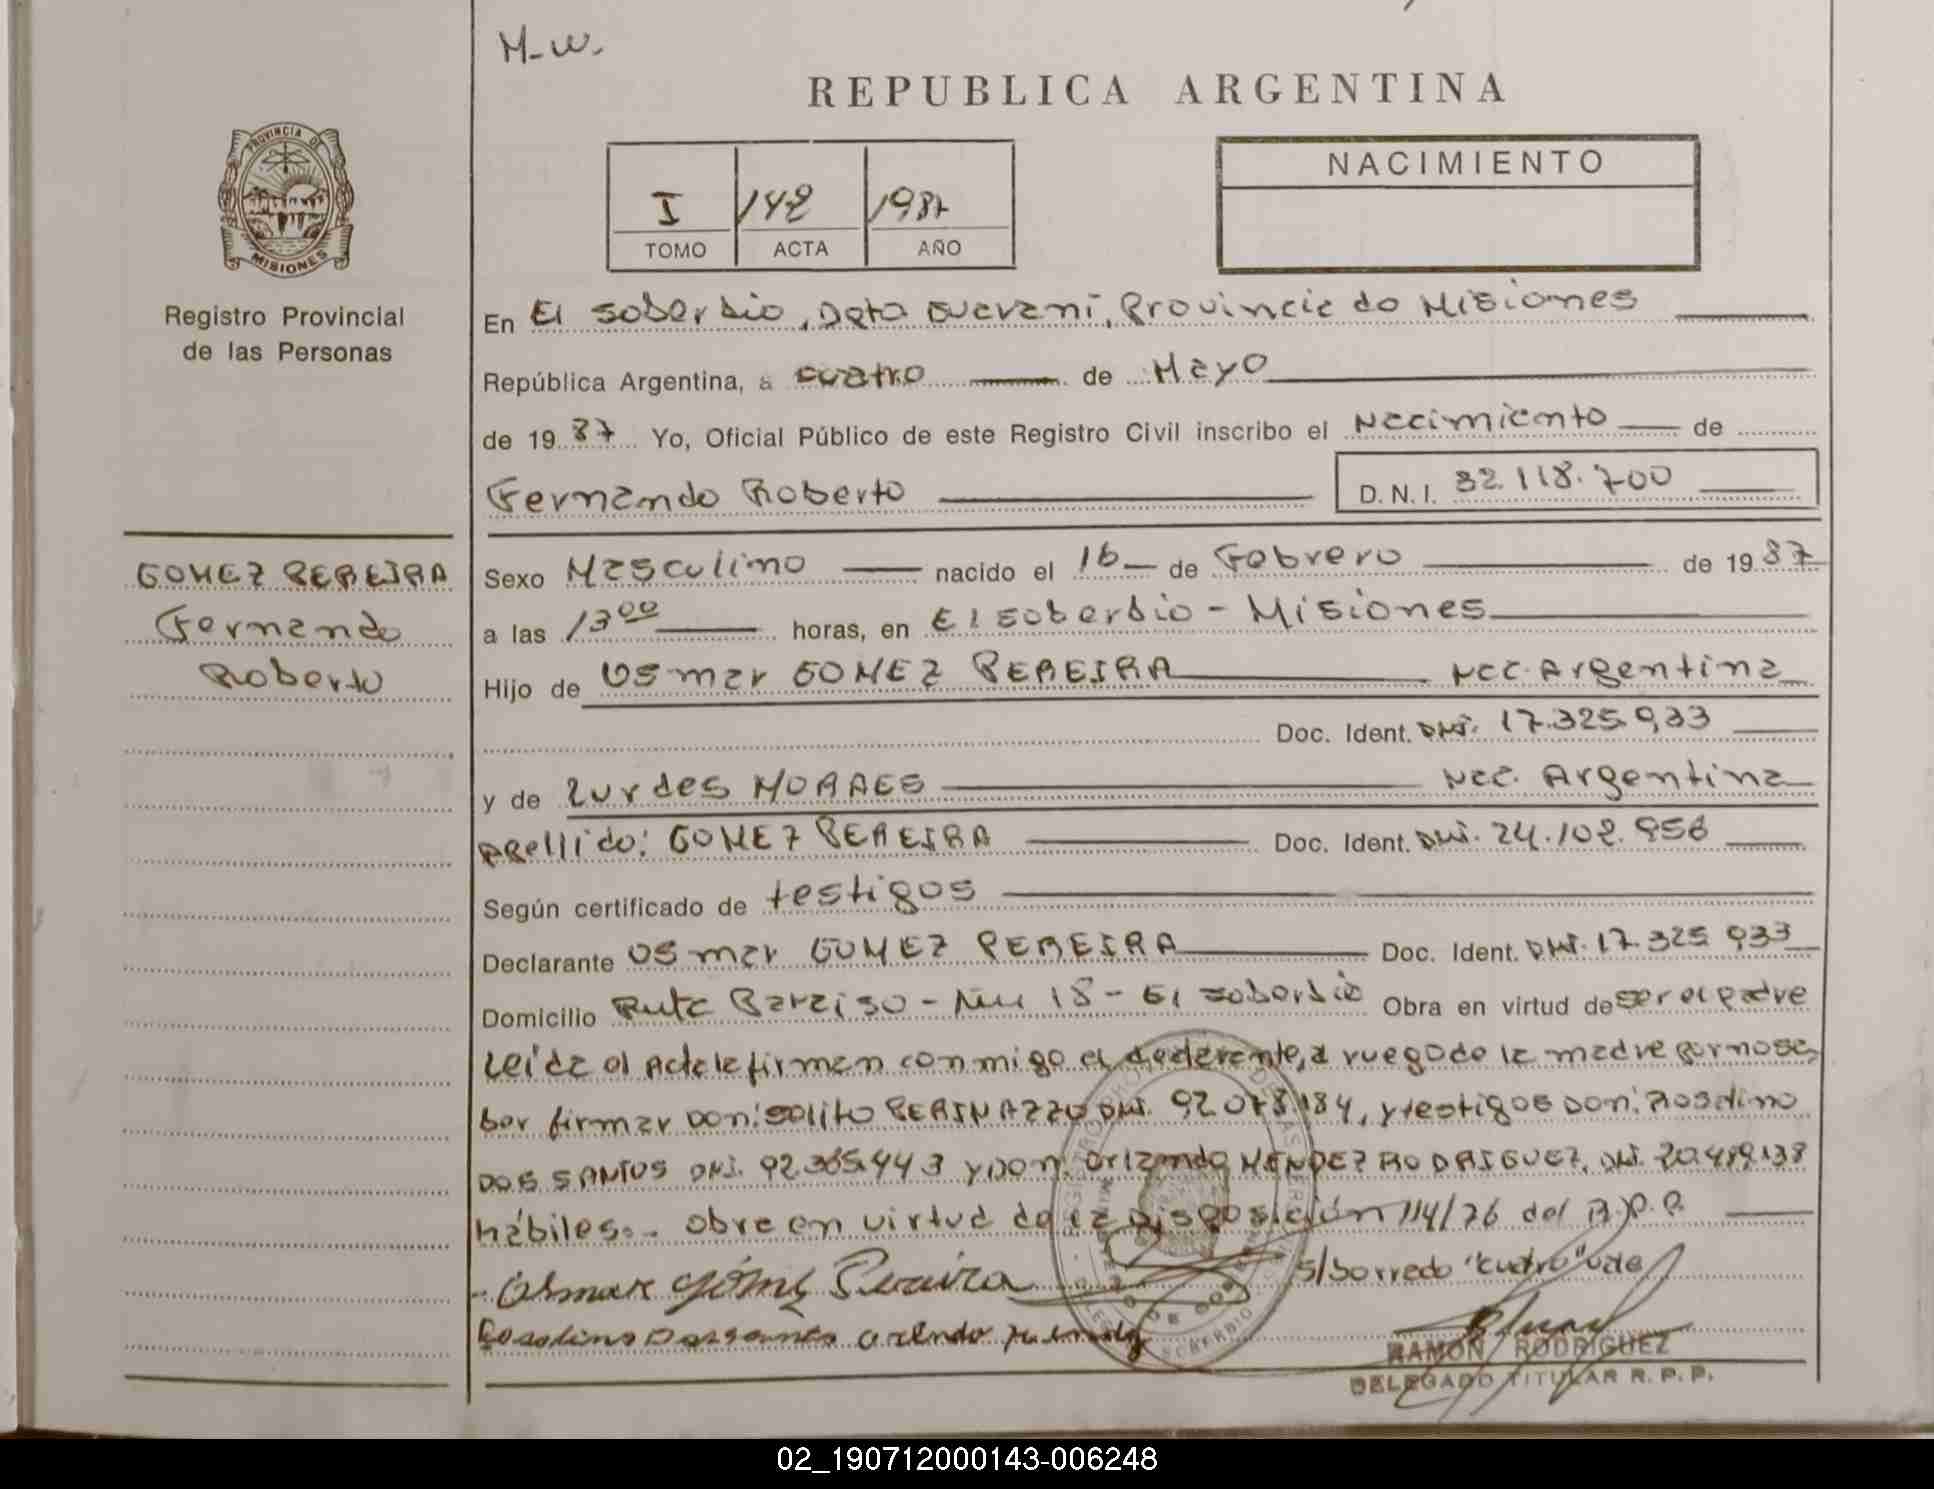 M-W.
REPUBLICA ARGENTINA
PROVINCIA DE
MISIONES
Registro Provincial
de las Personas
I 142 1987
TOMO ACTA AÑO
NACIMIENTO
En El Soberbio, Dpto Guarani, Provincia de Misiones
República Argentina, a cuatro de Mayo
de 1987 Yo, Oficial Público de este Registro Civil inscribo el Nacimiento de
Fernando Roberto D.N.I. 32.118.700
GOMEZ PEREIRA
Fernando
Roberto
Sexo Masculino nacido el 16 de Febrero de 1987
a las 13 00 horas, en El Soberbio - Misiones
Hijo de Osmar GOMEZ PEREIRA Nac. Argentina
Doc. Ident. DNI. 17.325.933
y de Lurdes MORAES Nac. Argentina
Apellido: GOMEZ PEREIRA Doc. Ident. DNI. 24.102.956
Según certificado de testigos
Declarante Osmar GOMEZ PEREIRA Doc. Ident. DNI. 17.325.933
Domicilio Ruta Paraiso - Km 18 - El Soberbio Obra en virtud de ser el padre
Leida el Acta la firman conmigo el declarante, a ruego de la madre por no sa-
ber firmar Don: PERINAZZO DNI. 92.078.184, y testigos Don: Rosalino
DOS SANTOS DNI. 92.365.443 y Don: Orlando MENDEZ RODRIGUEZ, DNI.
hábiles.- Obra en virtud de la Disposición 114/76 del R.P.P.
Osmar Gómez Pereira S/borrado "cuatro" Vale
RAMON RODRIGUEZ
DELEGADO TITULAR R. P. P.
02_190712000143-006248